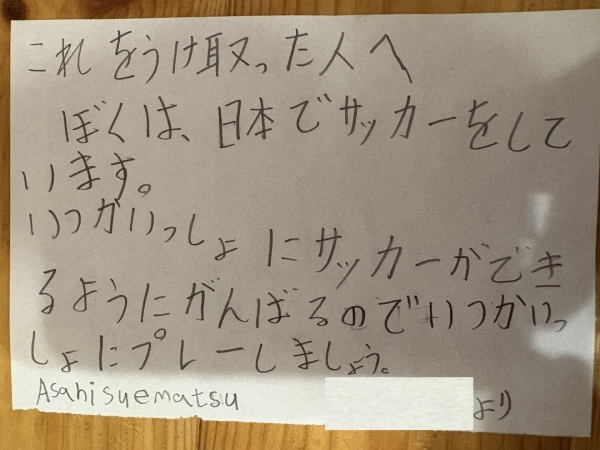 これをうけ取った人へ
ぼくは、日本でサッカーをして
います。
いつかいっしょにサッカーができ
るようにがんばるのでいつかいっ
しょにプレーしましょう。
Asahisuematsu
より